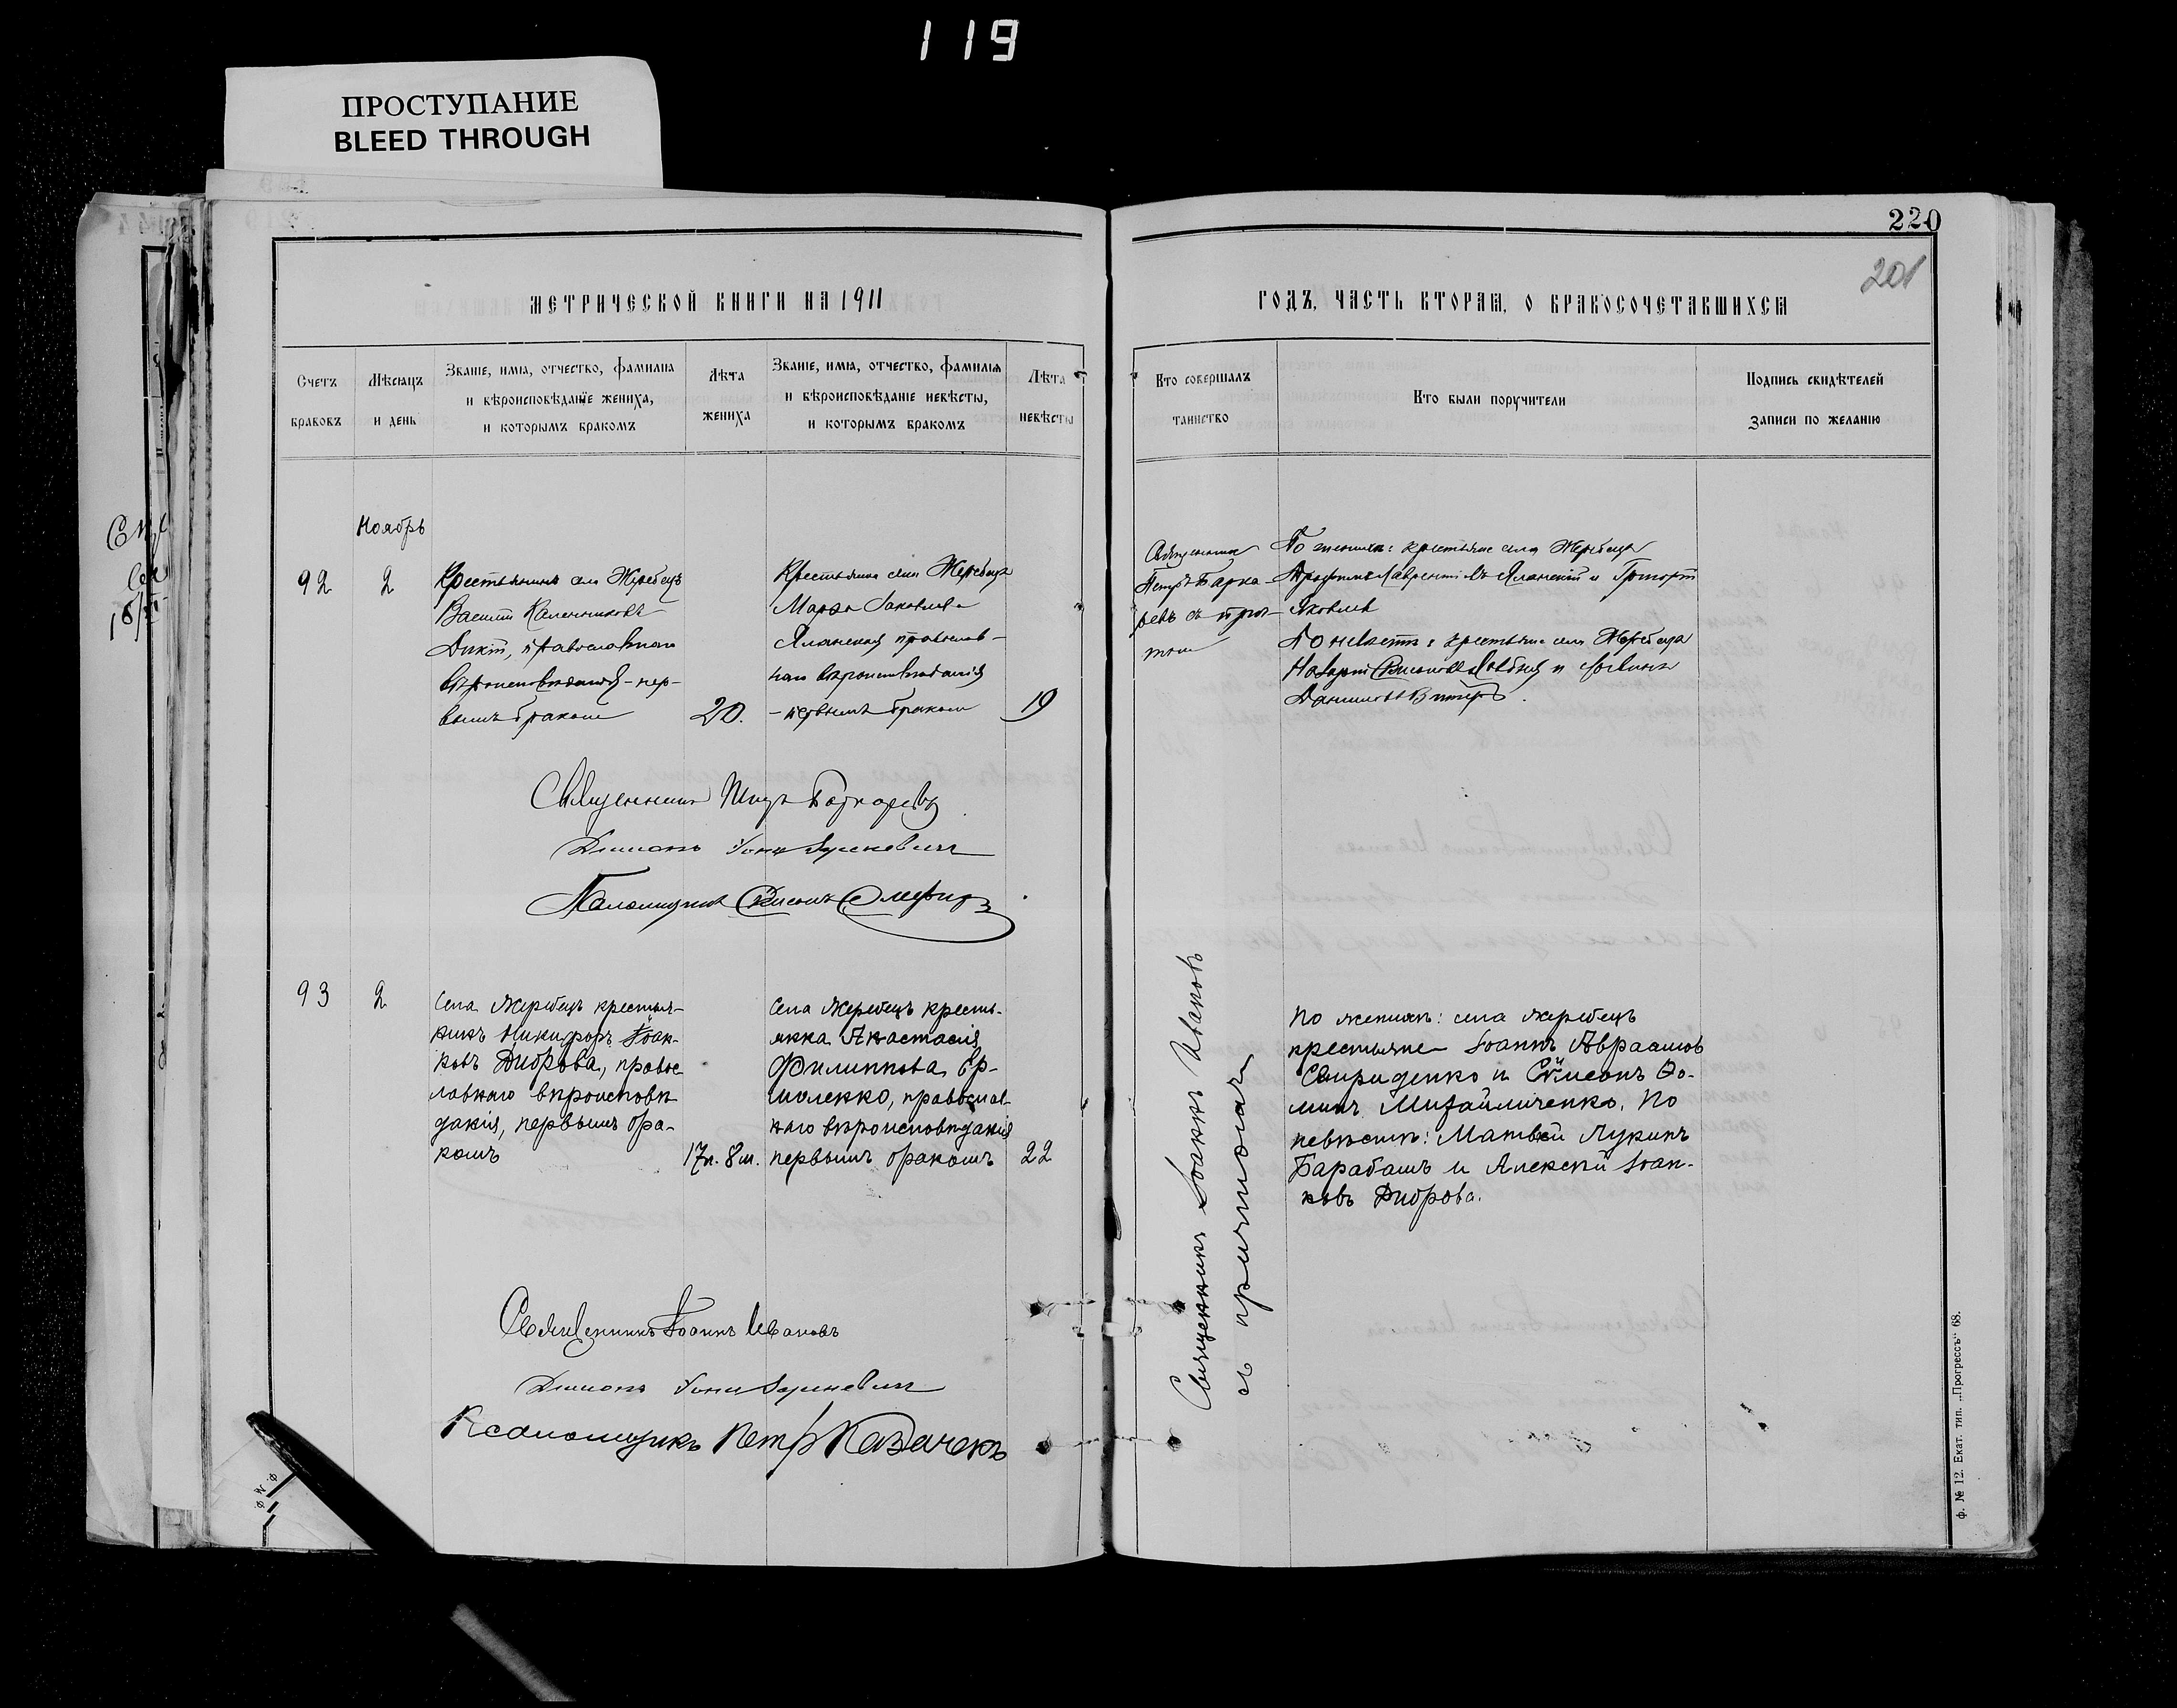 119
ПРОСТУПАНИЕ
BLEED THROUGH
220
201
МЕТРИЧЕСКОЙ КНИГИ НА 1911
ГОДЪ, ЧАСТЬ ВТОРАЯ, О БРАКОСОЧЕТАВШИХСЯ
Счетъ браковъ
Мѣсяцъ и день
Званіе, имя, отчество, фамилия и вѣроисповѣданіе жениха, и которымъ бракомъ
Лѣта жениха
Званіе, имя, отчество, фамилія и вѣроисповѣданіе невѣсты, и которымъ бракомъ
Лѣта невѣсты
Кто совершалъ таинство
Кто были поручители
Подпись свидѣтелей записи по желанію
Ноябрь
92
2
Крестьянинъ села Жеребецъ
Василій Калинниковъ
православнаго
вѣроисповѣданія - пер-
вымъ бракомъ
20.
Крестьянка села Жеребецъ
Марфа Іаковлева
Яланская православ-
наго вѣроисповѣданія
- первымъ бракомъ
19
Священникъ
Петръ
съ прич-
томъ
По женихѣ: крестьяне села Жеребца
Трофимъ Лаврентіевъ Яланскій и Григорій
Яковлевъ
По невѣстѣ: крестьяне села Жеребца
Даниловъ
Священникъ
Діаконъ
Псаломщикъ Симеонъ
93
2
Села Жеребецъ крестья-
нинъ Никифоръ Іоан-
новъ Диброва, правос
лавнаго вѣроисповѣ
данія, первымъ бра-
комъ
17л. 8м.
Села Жеребецъ кресть-
янка Анастасія
Филиппова Ер-
моленко, православ-
наго вѣроисповѣданія
первымъ бракомъ
22
Священникъ Іоаннъ Ивановъ
съ причтомъ
По женихѣ: села Жеребецъ
крестьяне Іоаннъ Авраамовъ
Свириденко и Сѵмеонъ Ѳо-
минъ Михайличенко. По
невѣстѣ: Матвѣй Лукинъ
Барабашъ и Алексѣй Іоан-
новъ Диброва.
Священникъ Іоаннъ Ивановъ
Діаконъ
Псаломщикъ Петръ Казачекъ
ф. № 12. Екат. тип. „Прогрессъ“ 68.